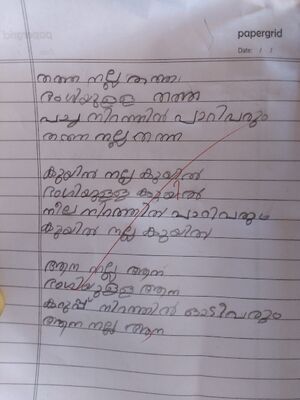 papergrid
Date: / /
തത്ത നല്ല തത്ത
ഭംഗിയുള്ള തത്ത
പച്ച നിറത്തിൽ പാറിവരും
തത്ത നല്ല തത്ത
കുയിൽ നല്ല കുയിൽ
ഭംഗിയുള്ള കുയിൽ
നീല നിറത്തിൽ പാറിവരും
കുയിൽ നല്ല കുയിൽ
ആന നല്ല ആന
ഭംഗിയുള്ള ആന
കറുപ്പ് നിറത്തിൽ ഓടിവരും
ആന നല്ല ആന